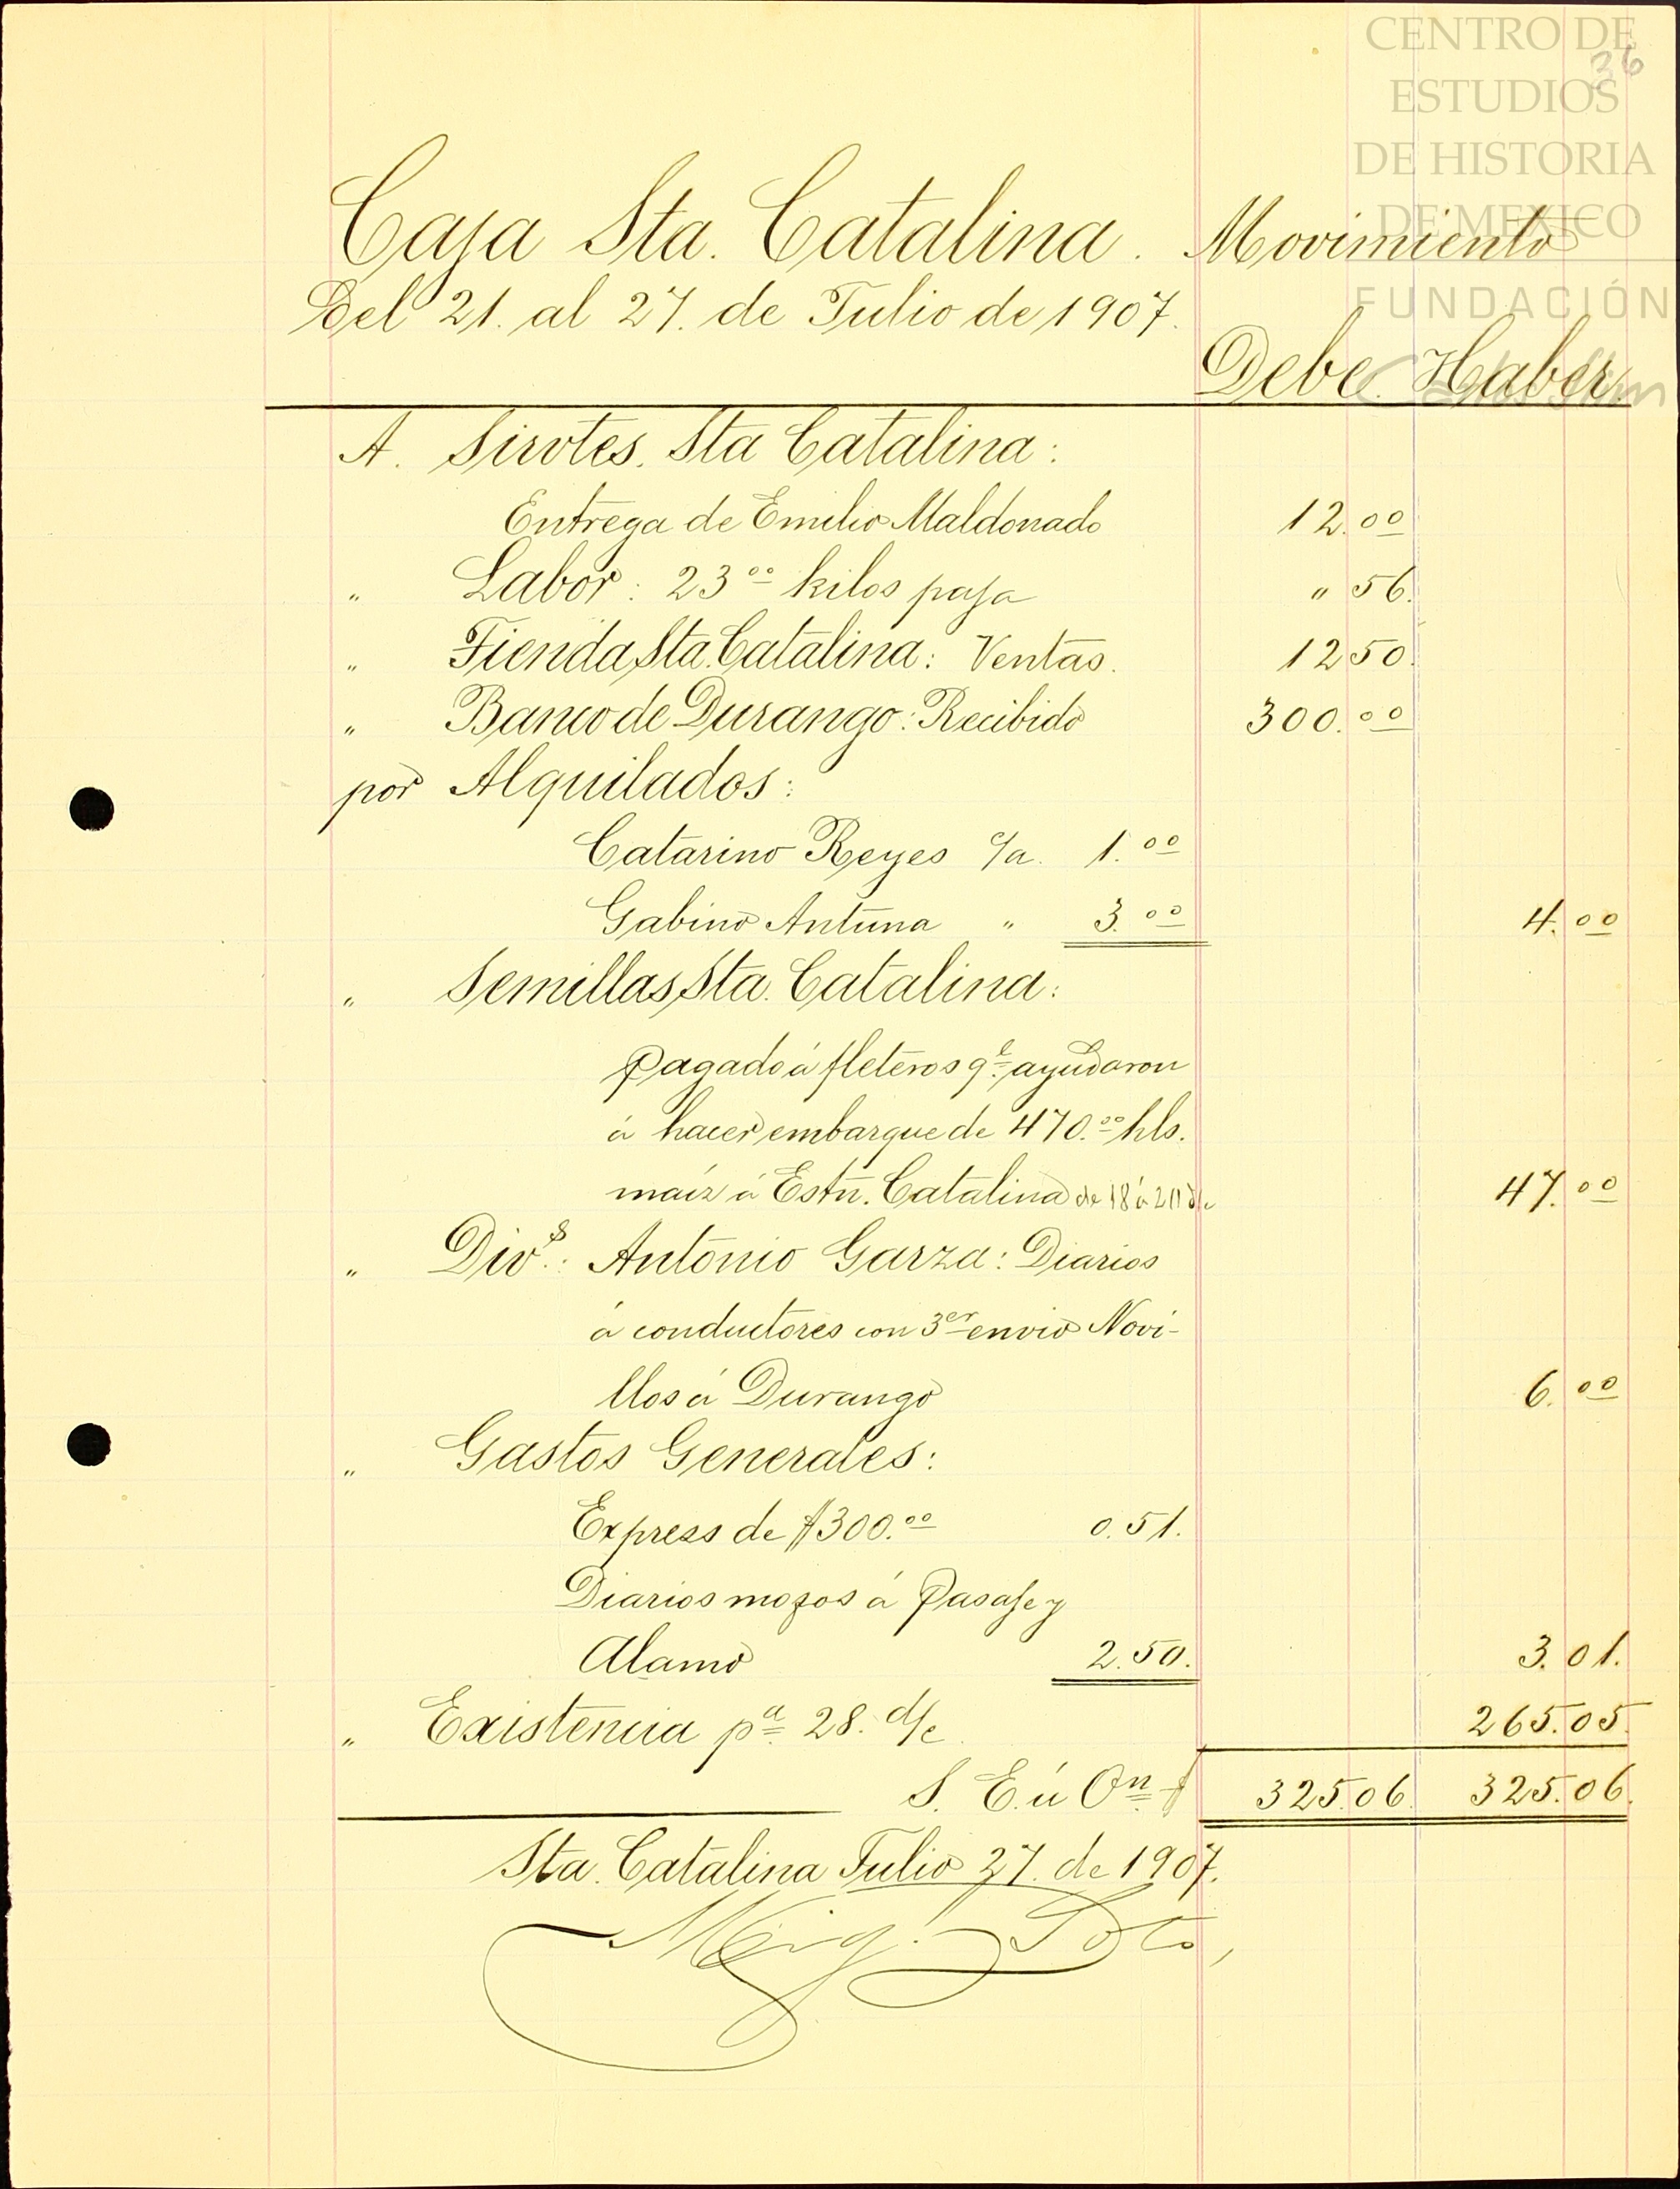 CENTRO DE
ESTUDIOS
DE HISTORIA
DE MEXICO
FUNDACIÓN
36
Caja Sta. Catalina. Movimiento
Del 21. al 27. de Julio de 1907.
Debe. Haber
A. Sirvtes. Sta Catalina:
Entrega de Emilio Maldonado 12.00
" Labor: 23 00 kilos paja " 56.
" Tienda Sta. Catalina: Ventas. 12 50.
" Banco de Durango: Recibido 300.00
por Alquilados:
Catarino Reyes c/a. 1.00
Gabino Antuna " 3.00 4.00
" Semillas Sta. Catalina:
Pagado á fleteros qe. ayudaron
á hacer embarque de 470.00 hls.
maíz á Estn. Catalina de 18 á 20 d/c 47.00
" Divs.: Antonio Garza: Diarios
á conductores con 3er envio Novi-
llos á Durango 6.00
" Gastos Generales:
Express de $300.00 0.51.
Diarios mozos á Pasaje y
Alamo 2.50. 3.01.
" Existencia pa. 28. d/c 265.05.
S. E. ú On. $ 325 06. 325.06.
Sta. Catalina Julio 27. de 1907.